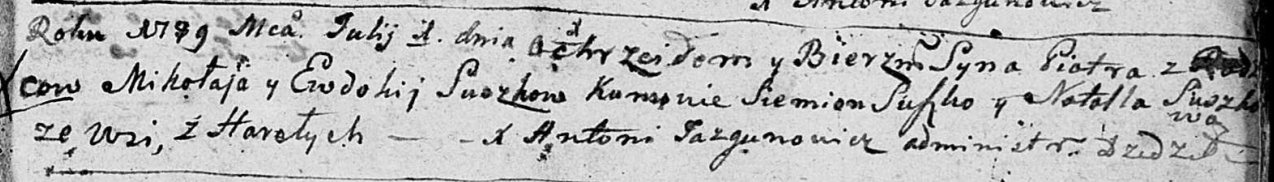 X Antoni Jazgunowicz
Roku 1789 Mca. Julij 1. dnia Ochrzciłem y Bierzm Syna Piotra z Rodzi
cow Mikołaja y Ewdokij Suszkow Kumowie Siemion Suszko y Natalla Suszko
wa
ze Wsi, z Horełych — - X Antoni Jazgunowicz administr.